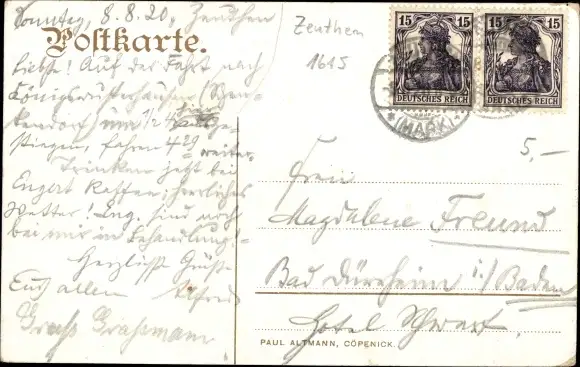 Sonntag, 8.8.20, Zeuthen
Postkarte.
Liebste! Auf der Fahrt nach
Königswusterhausen
um 1/2 4
stiegen, fahren 4 29 weiter.
Trinken jetzt bei
Kaffee; herrliches
Wetter! Ing. sind noch
bei mir in Behandlung!
Herzliche Grüße
Euch allen Alfred
Gruß Graßmann
Zeuthen
1615
15 15
DEUTSCHES REICH
15 15
DEUTSCHES REICH
*(MARK)*
5,—
Frau
Magdalene Freund
Bad Dürrheim i/Baden
Hotel
PAUL ALTMANN, CÖPENICK.